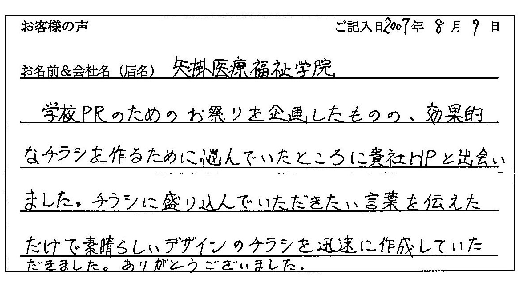 お客様の声 ご記入日2007年 8月 9日
お名前&会社名(店名) 矢掛医療福祉学院
学校PRのためのお祭りを企画したものの、効果的
なチラシを作るために悩んでいたところに貴社HPと出会い
ました。チラシに盛り込んでいただきたい言葉を伝えた
だけで素晴らしいデザインのチラシを迅速に作成していた
だきました。ありがとうございました。